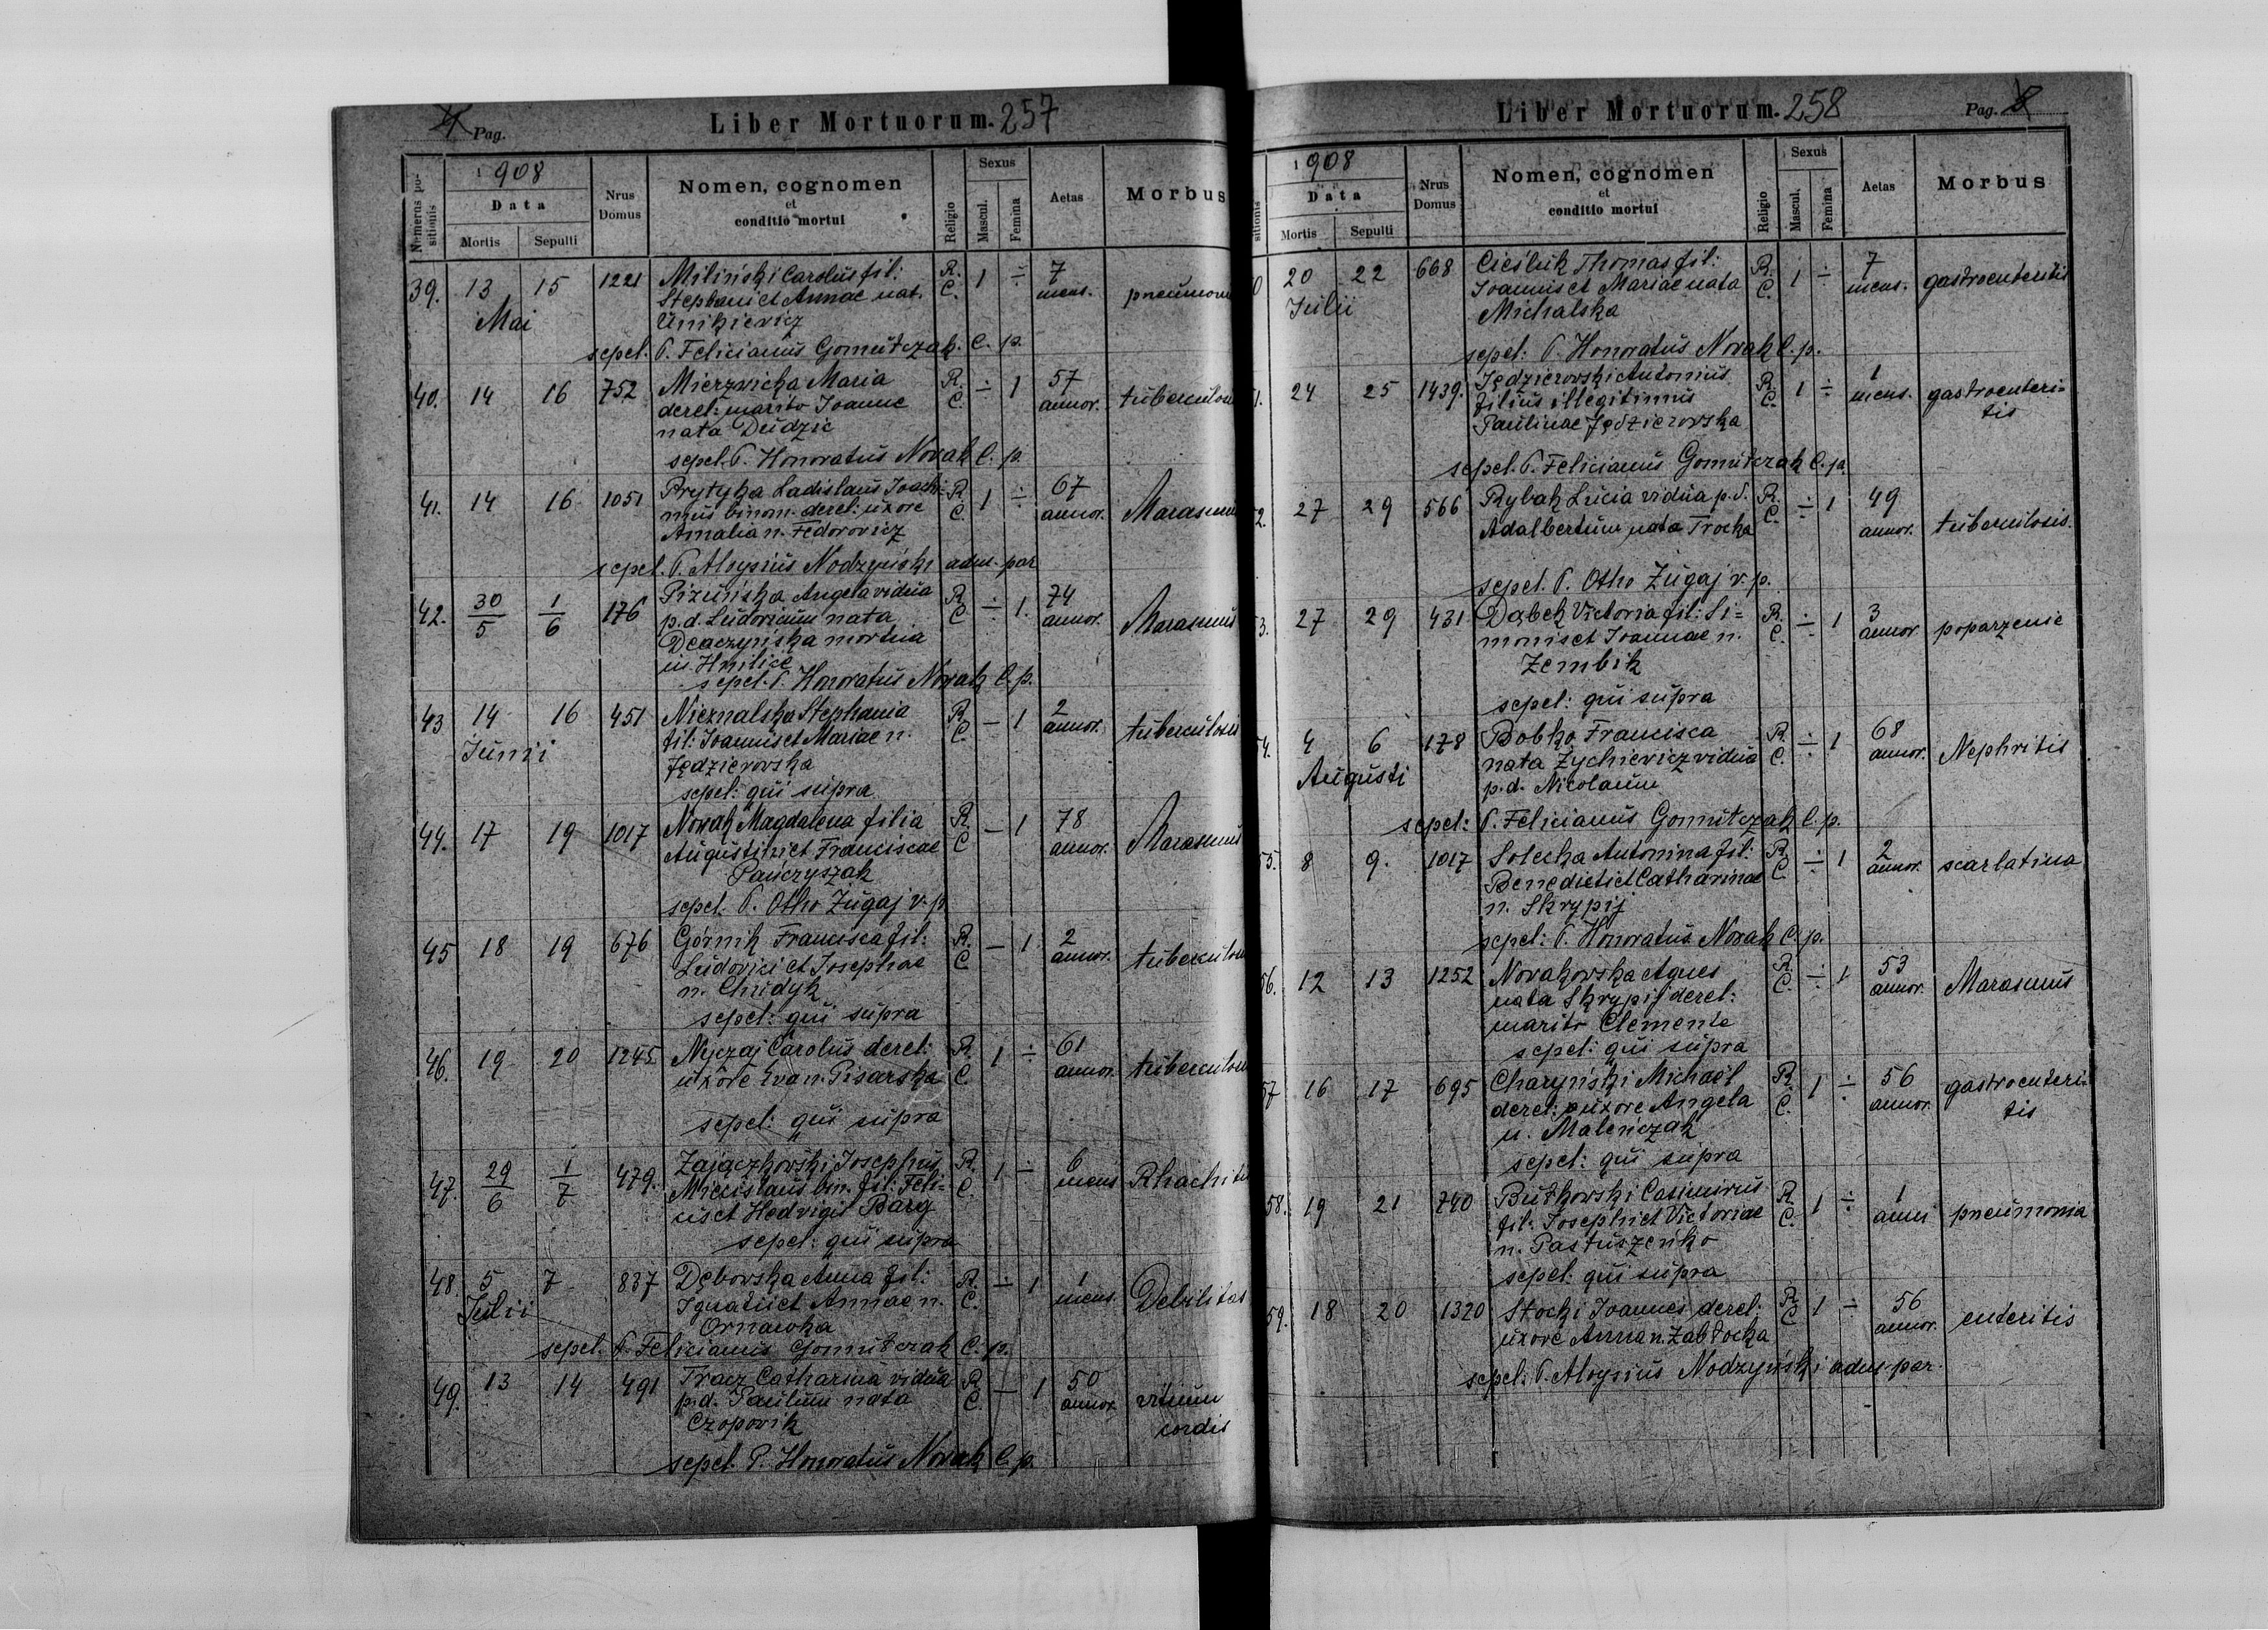 4 Pag.
Liber Mortuorum. 257
Numerus positionis
1908
Data
Mortis
Sepulti
Nrus Domus
Nomen, cognomen
et
conditio mortui
Religio
Sexus
Mascul.
Femina
Aetas
Morbus
39. 13 15 1221 Miliński Carolus fil: R. 1 ÷ 7
Mai Stephani et Annae nat. C. mens. pneumon
Unikievicz
sepel. P. Felicianus Gomułczak. C. p.
40. 14 16 752 Mierzvicka Maria R. ÷ 1 57
derel: marito Joanne C. annor. tuberculos
nata Dudzic
sepel. P. Honoratus Novak C. p.
41. 14 16 1051 Prytyka Ladislaus Joachi- R. 1 ÷ 67
mus binom. derel: uxore C. annor. Marasmus
Amalia n. Fedorovicz
sepel. P. Aloysius Nodzyński adm. par
42. 30/5 1/6 176 Pizuńska Angela vidua R. ÷ 1. 74
p. d. Ludovicum nata C annor. Marasmus
mortua
in Hnilice
sepel. P. Honoratus Novak C. p.
43 14 16 451 Nieznalska Stephania R. — 1 2
Junii fil: Joannis et Mariae n. C. annor. tuberculosis
Jędzierovska
sepel: qui supra
44. 17 19 1017 Novak Magdalena filia R. — 1 78
Augustini et Franciscae C annor. Marasmus
Pańczyszak
sepel: P. Otho Zugaj v. p
45 18 19 676 Górnik Francisca fil: R. — 1 2
Ludovici et Josephae C annor. tuberculos
n. Chudyk
sepel: qui supra
46. 19 20 1245 Nyczaj Carolus derel: R. 1 ÷ 61
uxore Eva n. Pisarska C. annor. tuberculos
sepel: qui supra
47. 29/6 1/7 479. Zajączkovski Josephus R. 1 ÷ 6
Miecislaus bin. fil: Feli- C. mens Rhachitis
cis et Hedvigis Barg
sepel: qui supra
48. 5 7 837 Debovska Anna fil: R. ÷ 1 1
Julii Ignatii et Annae n. C. mens. Debilitas
Ornawka
sepel. P. Felicianus Gomułczak C. p.
49. 13 14 491 Tracz Catharina vidua R. — 1 50
p. d. Paulum nata C. annor. vitium
Czopovik cordis
sepel. P. Honoratus Novak C. p.
Liber Mortuorum. 258
Pag. 8
sitionis
1908
Data
Mortis
Sepulti
Nrus Domus
Nomen, cognomen
et
conditio mortui
Religio
Sexus
Mascul.
Femina
Aetas
Morbus
0 20 22 668 Cieśluk Thomas fil: R. 1 ÷ 7
Julii Joannis et Mariae nata C. mens. gastroenteritis
Michalska
sepel: P. Honoratus Novak C. p.
1. 24 25 1439. Jędzierovski Antonius R. 1 ÷ 1
filius illegitimus C. mens. gastroenteri-
Paulinae Jędzierovska tis
sepel. P. Felicianus Gomułczak C. p.
2. 27 29 566 Rybak Lucia vidua p. d. R. ÷ 1 49
Adalbertum nata Trocka C. annor. tuberculosis.
sepel. P. Otho Zugaj v. p.
3. 27 29 431 Dąbek Victoria fil: Si- R. ÷ 1 3
monis et Joannae n. C. annor poparzenie
Zembik
sepel: qui supra
54. 4 6 178 Bobko Francisca R. ÷ 1 68
Augusti nata Zychievicz vidua C. annor. Nephritis
p. d. Nicolaum
sepel: P. Felicianus Gomułczak C. p.
55. 8 9. 1017 Solecka Antonina fil: R. ÷ 1 2
Benedicti et Catharinae C. annor. scarlatina
n. Skrypij
sepel: P. Honoratus Novak C. p.
56. 12 13 1252 Novakovska Agnes R. ÷ 1 53
nata Skrypij derel: C. annor. Marasmus
marito Clemente
sepel: qui supra
57 16 17 695 Charyński Michaël R. 1 ÷ 56
derel: uxore Angela C. annor. gastroenteri-
n. Maleńczak tis
sepel: qui supra
58. 19 21 740 Butkovski Casimirus R. 1 ÷ 1
fil: Josephi et Victoriae C. anni pneumonia
n. Pastuszeńko
sepel: qui supra
59. 18 20 1320 Stocki Joannes derel: R. 1 ÷ 56
uxore Anna n. Zabłocka C annor. enteritis
sepel: P. Aloysius Nodzyński adm. par.